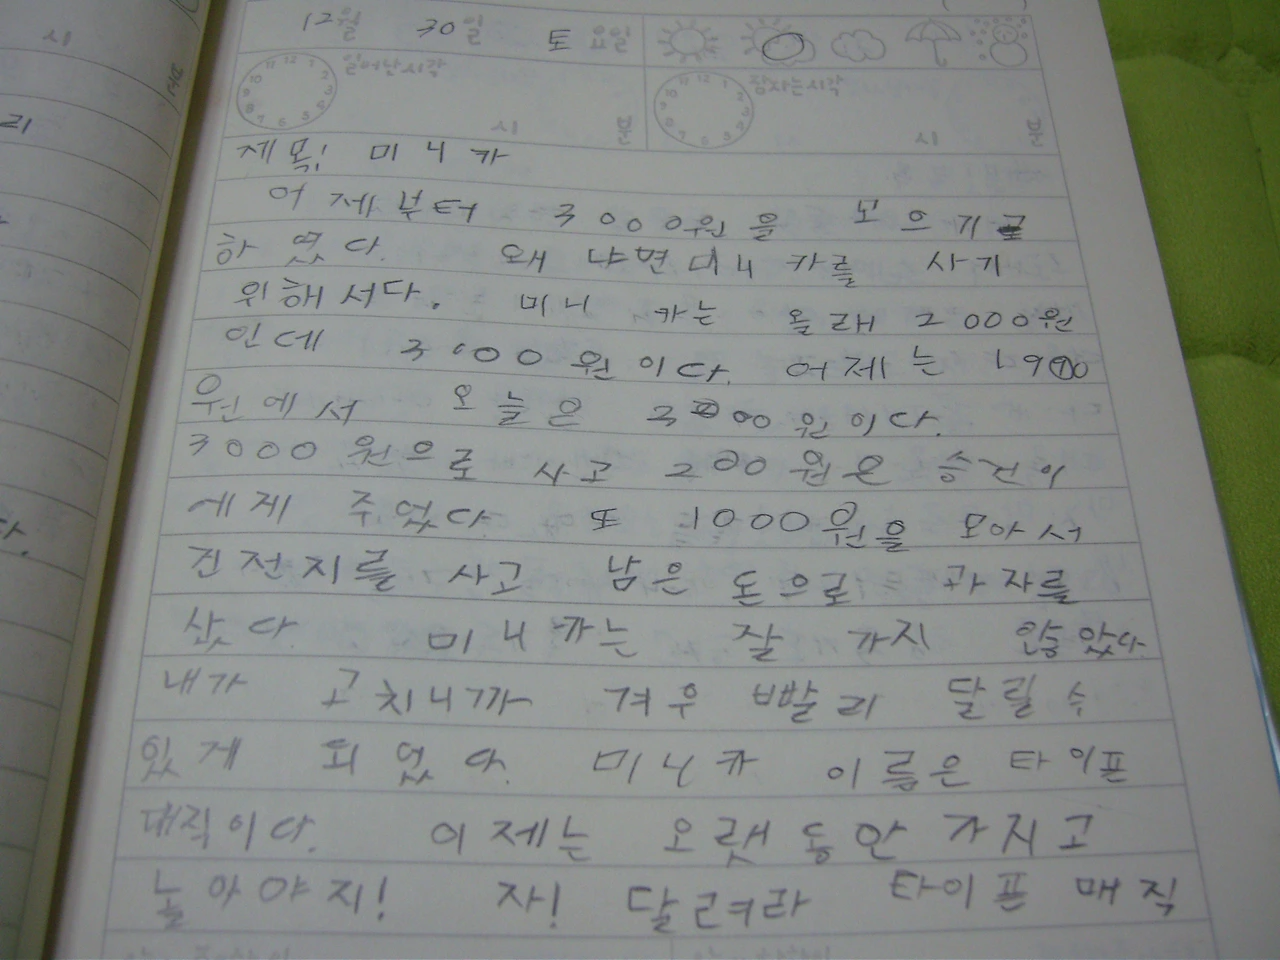 12월 30일 토요일
일어난시각 잠자는시각
시 분 시 분
제목! 미니카
어제부터 3000원을 모으기로
하였다. 왜냐면 미니카를 사기
위해서다. 미니카는 올래 2000원
인데 3000원이다. 어제는 1900
원에서 오늘은 3200원이다.
3000원으로 사고 200원은 승건이
에게 주었다 또 1000원을 모아서
건전지를 사고 남은 돈으로 과자를
샀다 미니카는 잘 가지 않았다.
내가 고치니까 겨우 빨리 달릴 수
있게 되었다. 미니카 이름은 타이프
매직이다. 이제는 오랫동안 가지고
놀아야지! 자! 달려라 타이프 매직